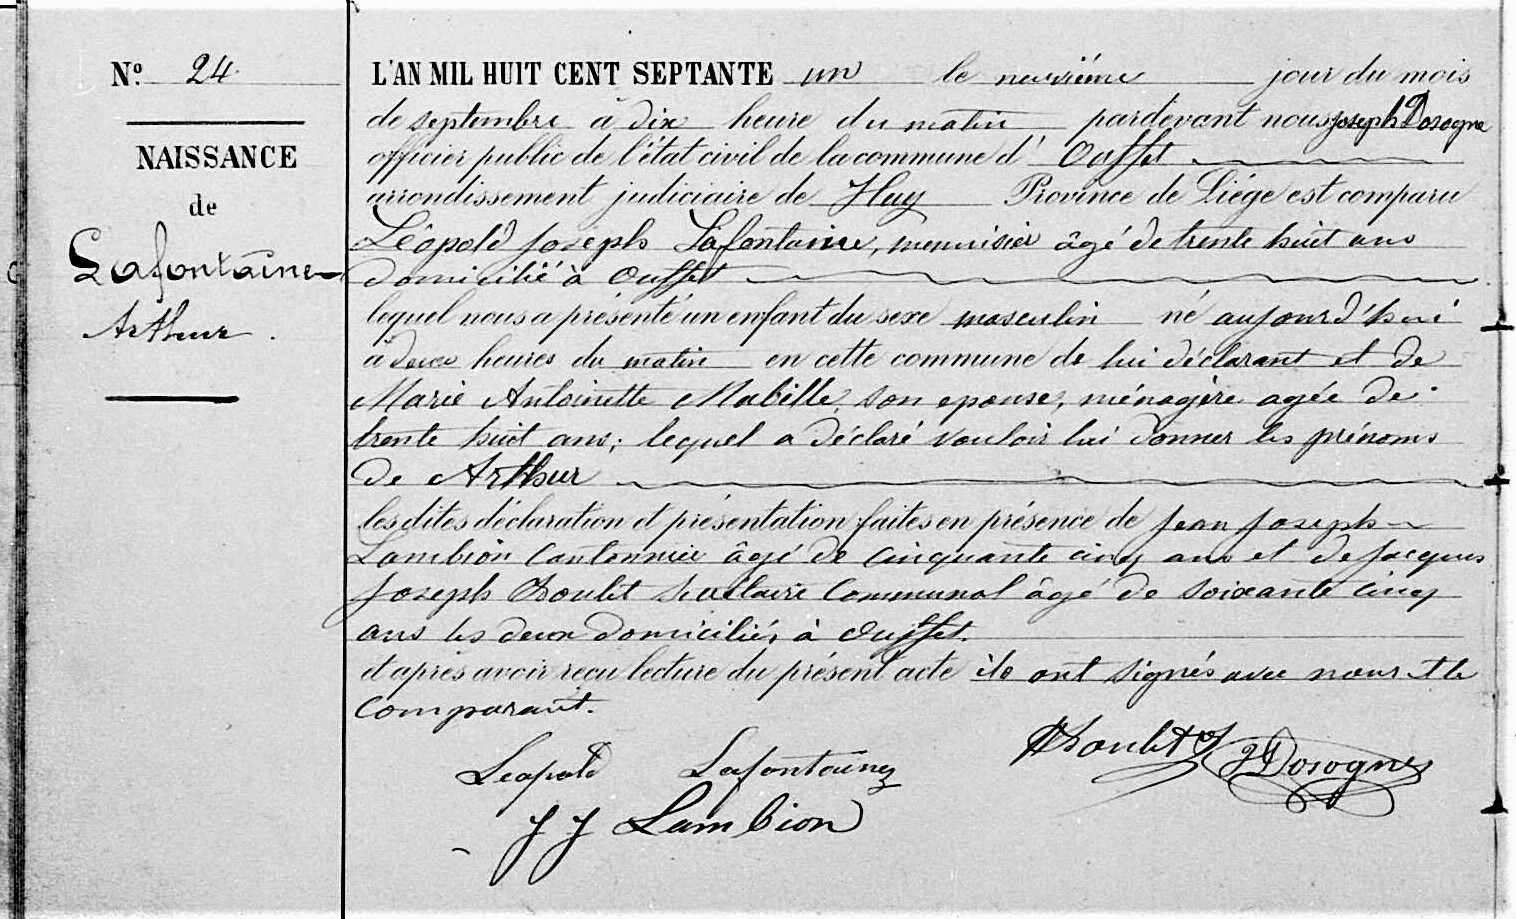 Nº 24
NAISSANCE
de
Lafontaine
Arthur.
L'AN MIL HUIT CENT SEPTANTE un le neuvième jour du mois
de septembre à dix heure du matin pardevant nous Joseph Dosogne
officier public de l'état civil de la commune d' Ouffet
arrondissement judiciaire de Huy Province de Liége est comparu
Léopold Joseph Lafontaine, menuisier âgé de trente huit ans
domicilié à Ouffet
lequel nous a présenté un enfant du sexe masculin né aujourd'hui
à deux heures du matin en cette commune de lui déclarant et de
Marie Antoinette Mabille, son epouse, ménagère agée de
trente huit ans; lequel a déclaré vouloir lui donner les prénoms
de Arthur
les dites déclaration et présentation faites en présence de Jean Joseph
Lambion Cantonnier âgé de cinquante cinq ans et de Jacques
Joseph secrétaire Communal âgé de soixante cinq
ans les deux domiciliés à Ouffet.
et après avoir reçu lecture du présent acte ils ont signés avec nous et le
comparant.
Leopold Lafontaine
JDosogne
J J Lambion